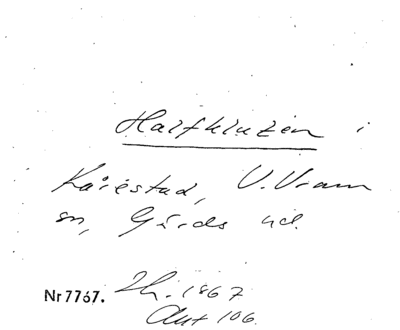 Halfkluzen i
Kårestad, V. Vram
sn, Gärds hd.
Nr 7767. Th. 1867
Ant 106